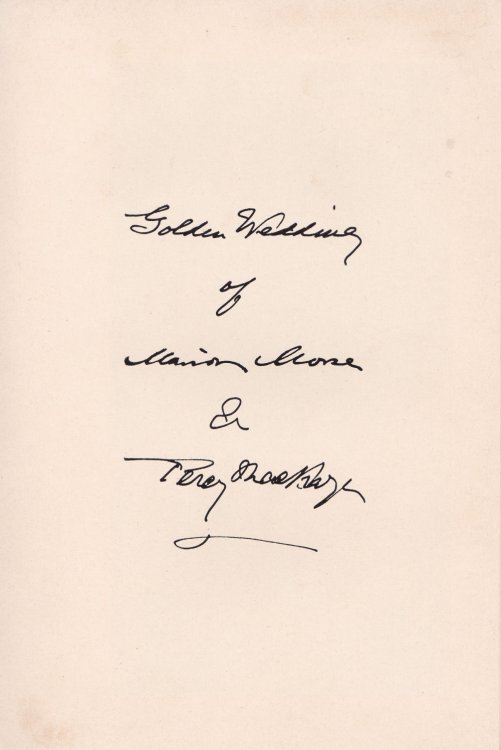 Golden Wedding
of
Marion Morse
&
Percy MacKaye